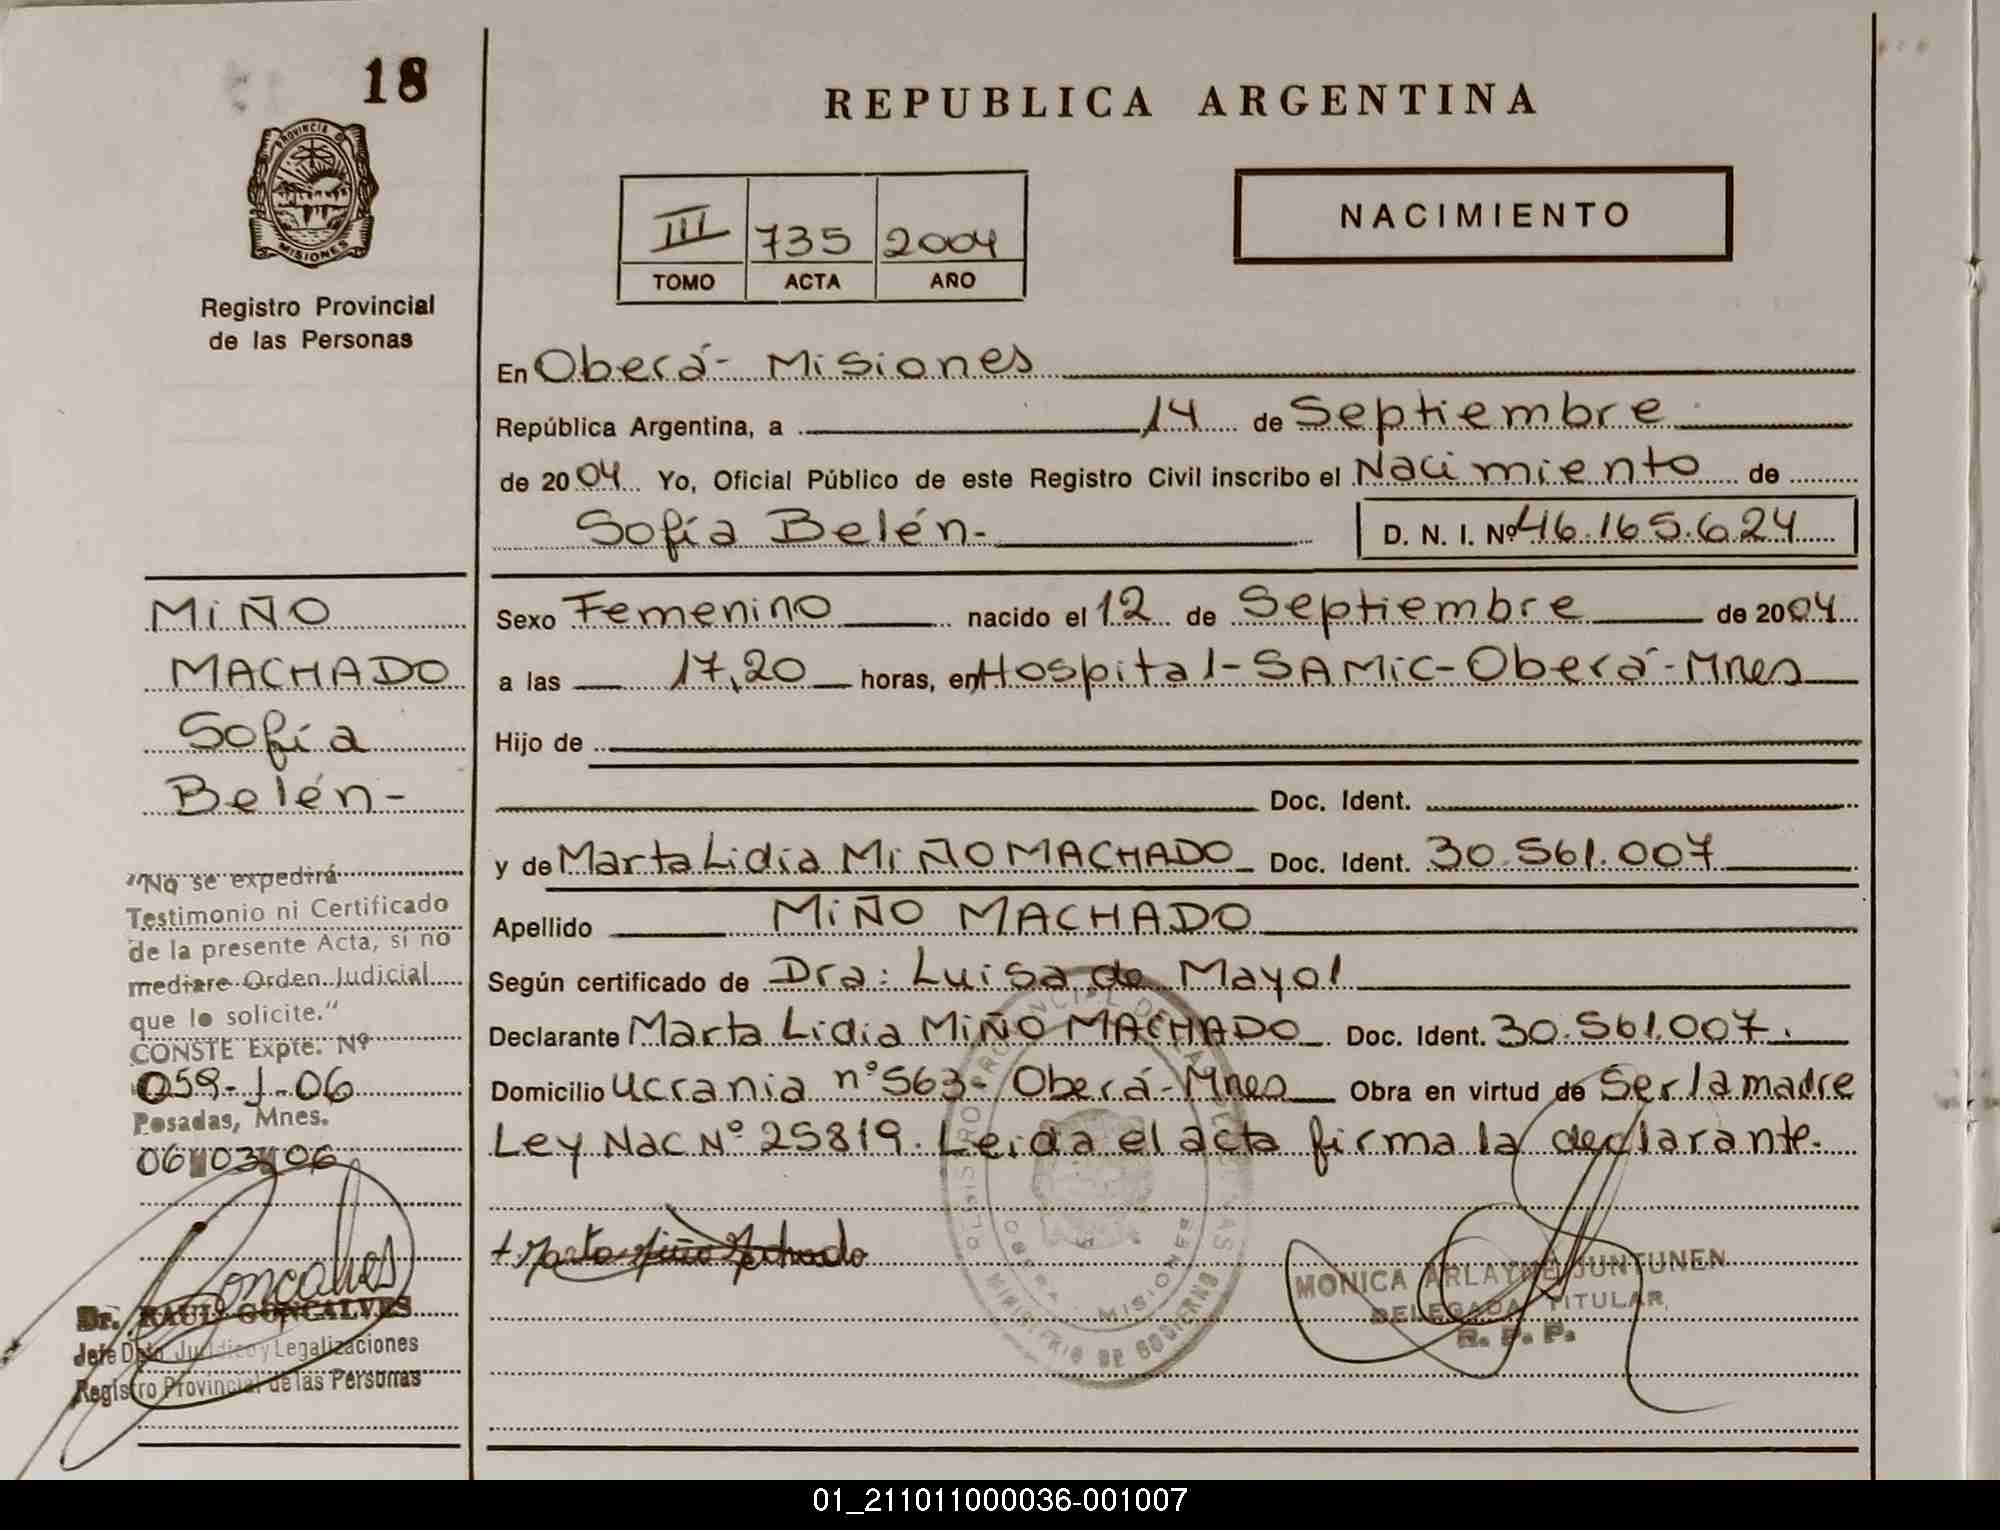 18
PROVINCIA DE
MISIONES
Registro Provincial
de las Personas
REPUBLICA ARGENTINA
III 735 2004
TOMO ACTA AÑO
NACIMIENTO
En Oberá- Misiones
República Argentina, a 14 de Septiembre
de 2004 Yo, Oficial Público de este Registro Civil inscribo el Nacimiento de
Sofía Belén-
D. N. I. Nº 46.165.624
MIÑO
MACHADO
Sofía
Belén-
Sexo Femenino nacido el 12 de Septiembre de 2004
a las 17,20 horas, en Hospital-SAMIC-Oberá-Mnes
Hijo de
Doc. Ident.
y de Marta Lidia MIÑO MACHADO Doc. Ident. 30.561.007
Apellido MIÑO MACHADO
Según certificado de Dra: Luisa de Mayol
Declarante Marta Lidia MIÑO MACHADO Doc. Ident. 30.561.007.
Domicilio Ucrania nº563- Oberá-Mnes Obra en virtud de Ser la madre
Ley Nac Nº 25819. Leida el acta firma la declarante.
"No se expedirá
Testimonio ni Certificado
de la presente Acta, si no
mediare Orden Judicial
que lo solicite."
CONSTE Expte. Nº
059-J-06
Posadas, Mnes.
06 03 06
Goncalves
Dr. RAUL GONCALVES
Jefe Dpto Jurídico y Legalizaciones
Registro Provincial de las Personas
Marta Miño Machado
REGISTRO PROVINCIAL DE LAS PERSONAS
OBERA MISIONES
MINISTERIO DE GOBIERNO
MONICA ARLAYNE JUNTUNEN
DELEGADA TITULAR
R. P. P.
01_211011000036-001007